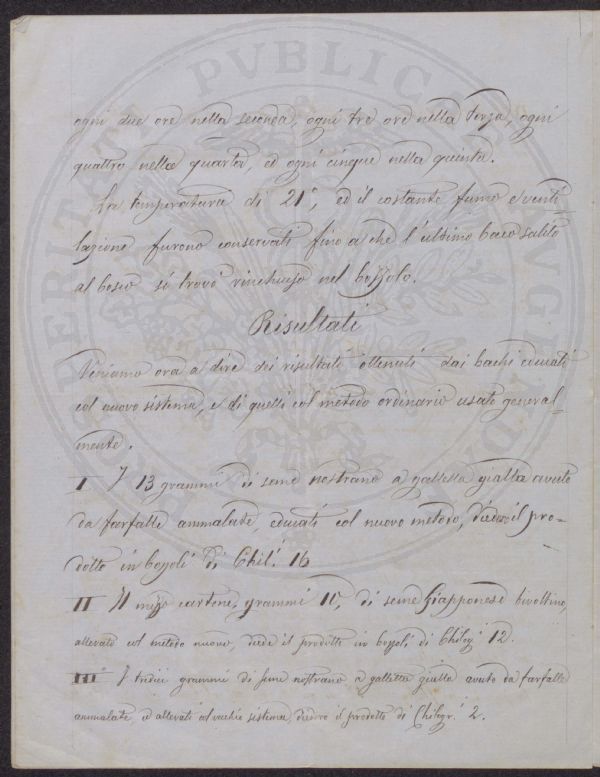 ogni due ore nella seconda, ogni tre ore nella terza, ogni
quattro nella quarta, ed ogni cinque nella quinta.
La temperatura di 21°, ed il costante fumo e venti=
lazione furono conservati fino a che l'ultimo baco salito
al bosco si trovò rinchiuso nel bozzolo.
Risultati
Veniamo ora a dire dei risultati ottenuti dai bachi educati
col nuovo sistema, e di quelli col metodo ordinario usato general=
mente.
I I 13 grammi di seme nostrano a galletta gialla avuto
da farfalle ammalate, educati col nuovo metodo, diedero il pro=
dotto in bozzoli di Chil. 16
II Il mezzo cartone, grammi 10, di seme Giapponese bivoltino,
allevato col metodo nuovo, diede il prodotto in bozzoli di Chilog. 12.
III I tredici grammi di seme nostrano a galletta gialla avuto da farfalle
ammalate, ed allevati col vecchio sistema, diedero il prodotto di Chilogr. 2.